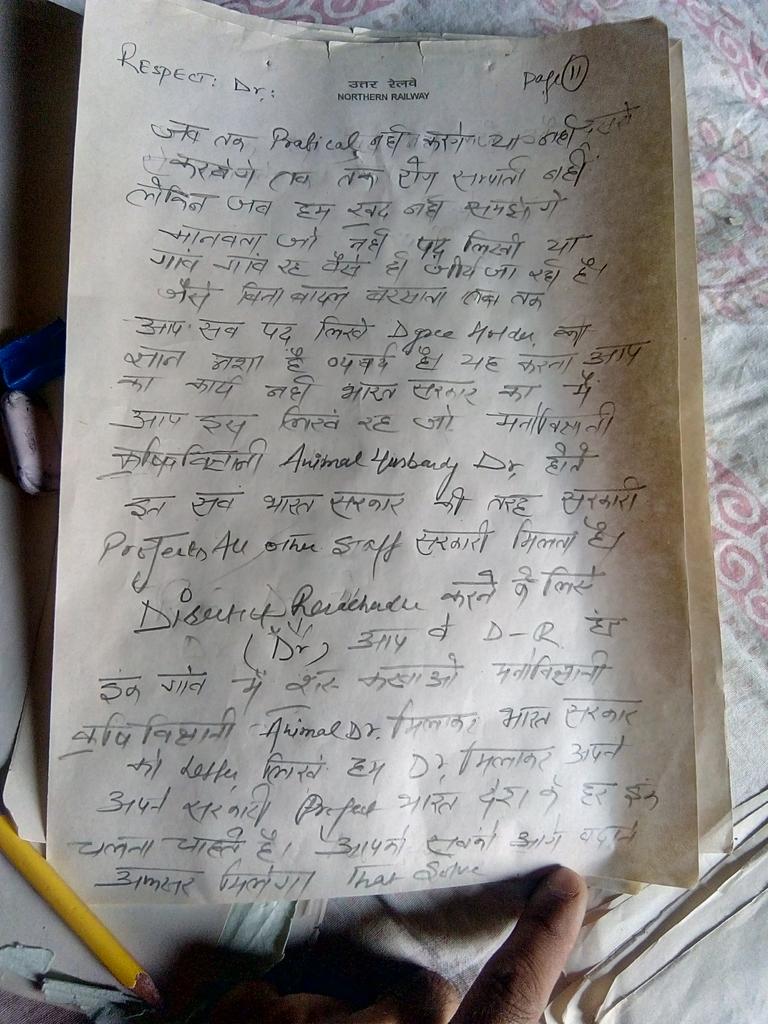 RESPECT: Dr.:
उत्तर रेलवे
NORTHERN RAILWAY
Page 11
जब तक Pratical नही करगे या नही
करवाेगे तब तक रोग समाप्ती नही
लेकिन जब हम खुद नही समझेगे
मानवता जो नही पढ़ लिखी या
गांव गांव रह वैसे ही जीये जा रही है।
जैसे बिना बादल बरसात तब तक
आप सब पढ़ लिखे Dgree का
ज्ञान नशा है है। यह करना आप
का कार्य नही भारत सरकार का मैं
आप इस लिखं रह जो मनोविज्ञानी
कृषि विज्ञानी Animal Husbandy Dr. होते
इन सब भारत सरकार की तरह सरकारी
Projects All other Staff सरकारी मिलता है।
करने के लिये
(Dr) आप वे D-R. है
इक गांव में करवाओ मनोविज्ञानी
कृषि विज्ञानी Animal Dr. मिलाकर भारत सरकार
को letter लिखें हम Dr. मिलाकर अपने
अपने सरकारी भारत देश के हर इक
चलना चाहते है। आपको सबको आगे बढ़ाने
अवसर मिलेगा That Solve